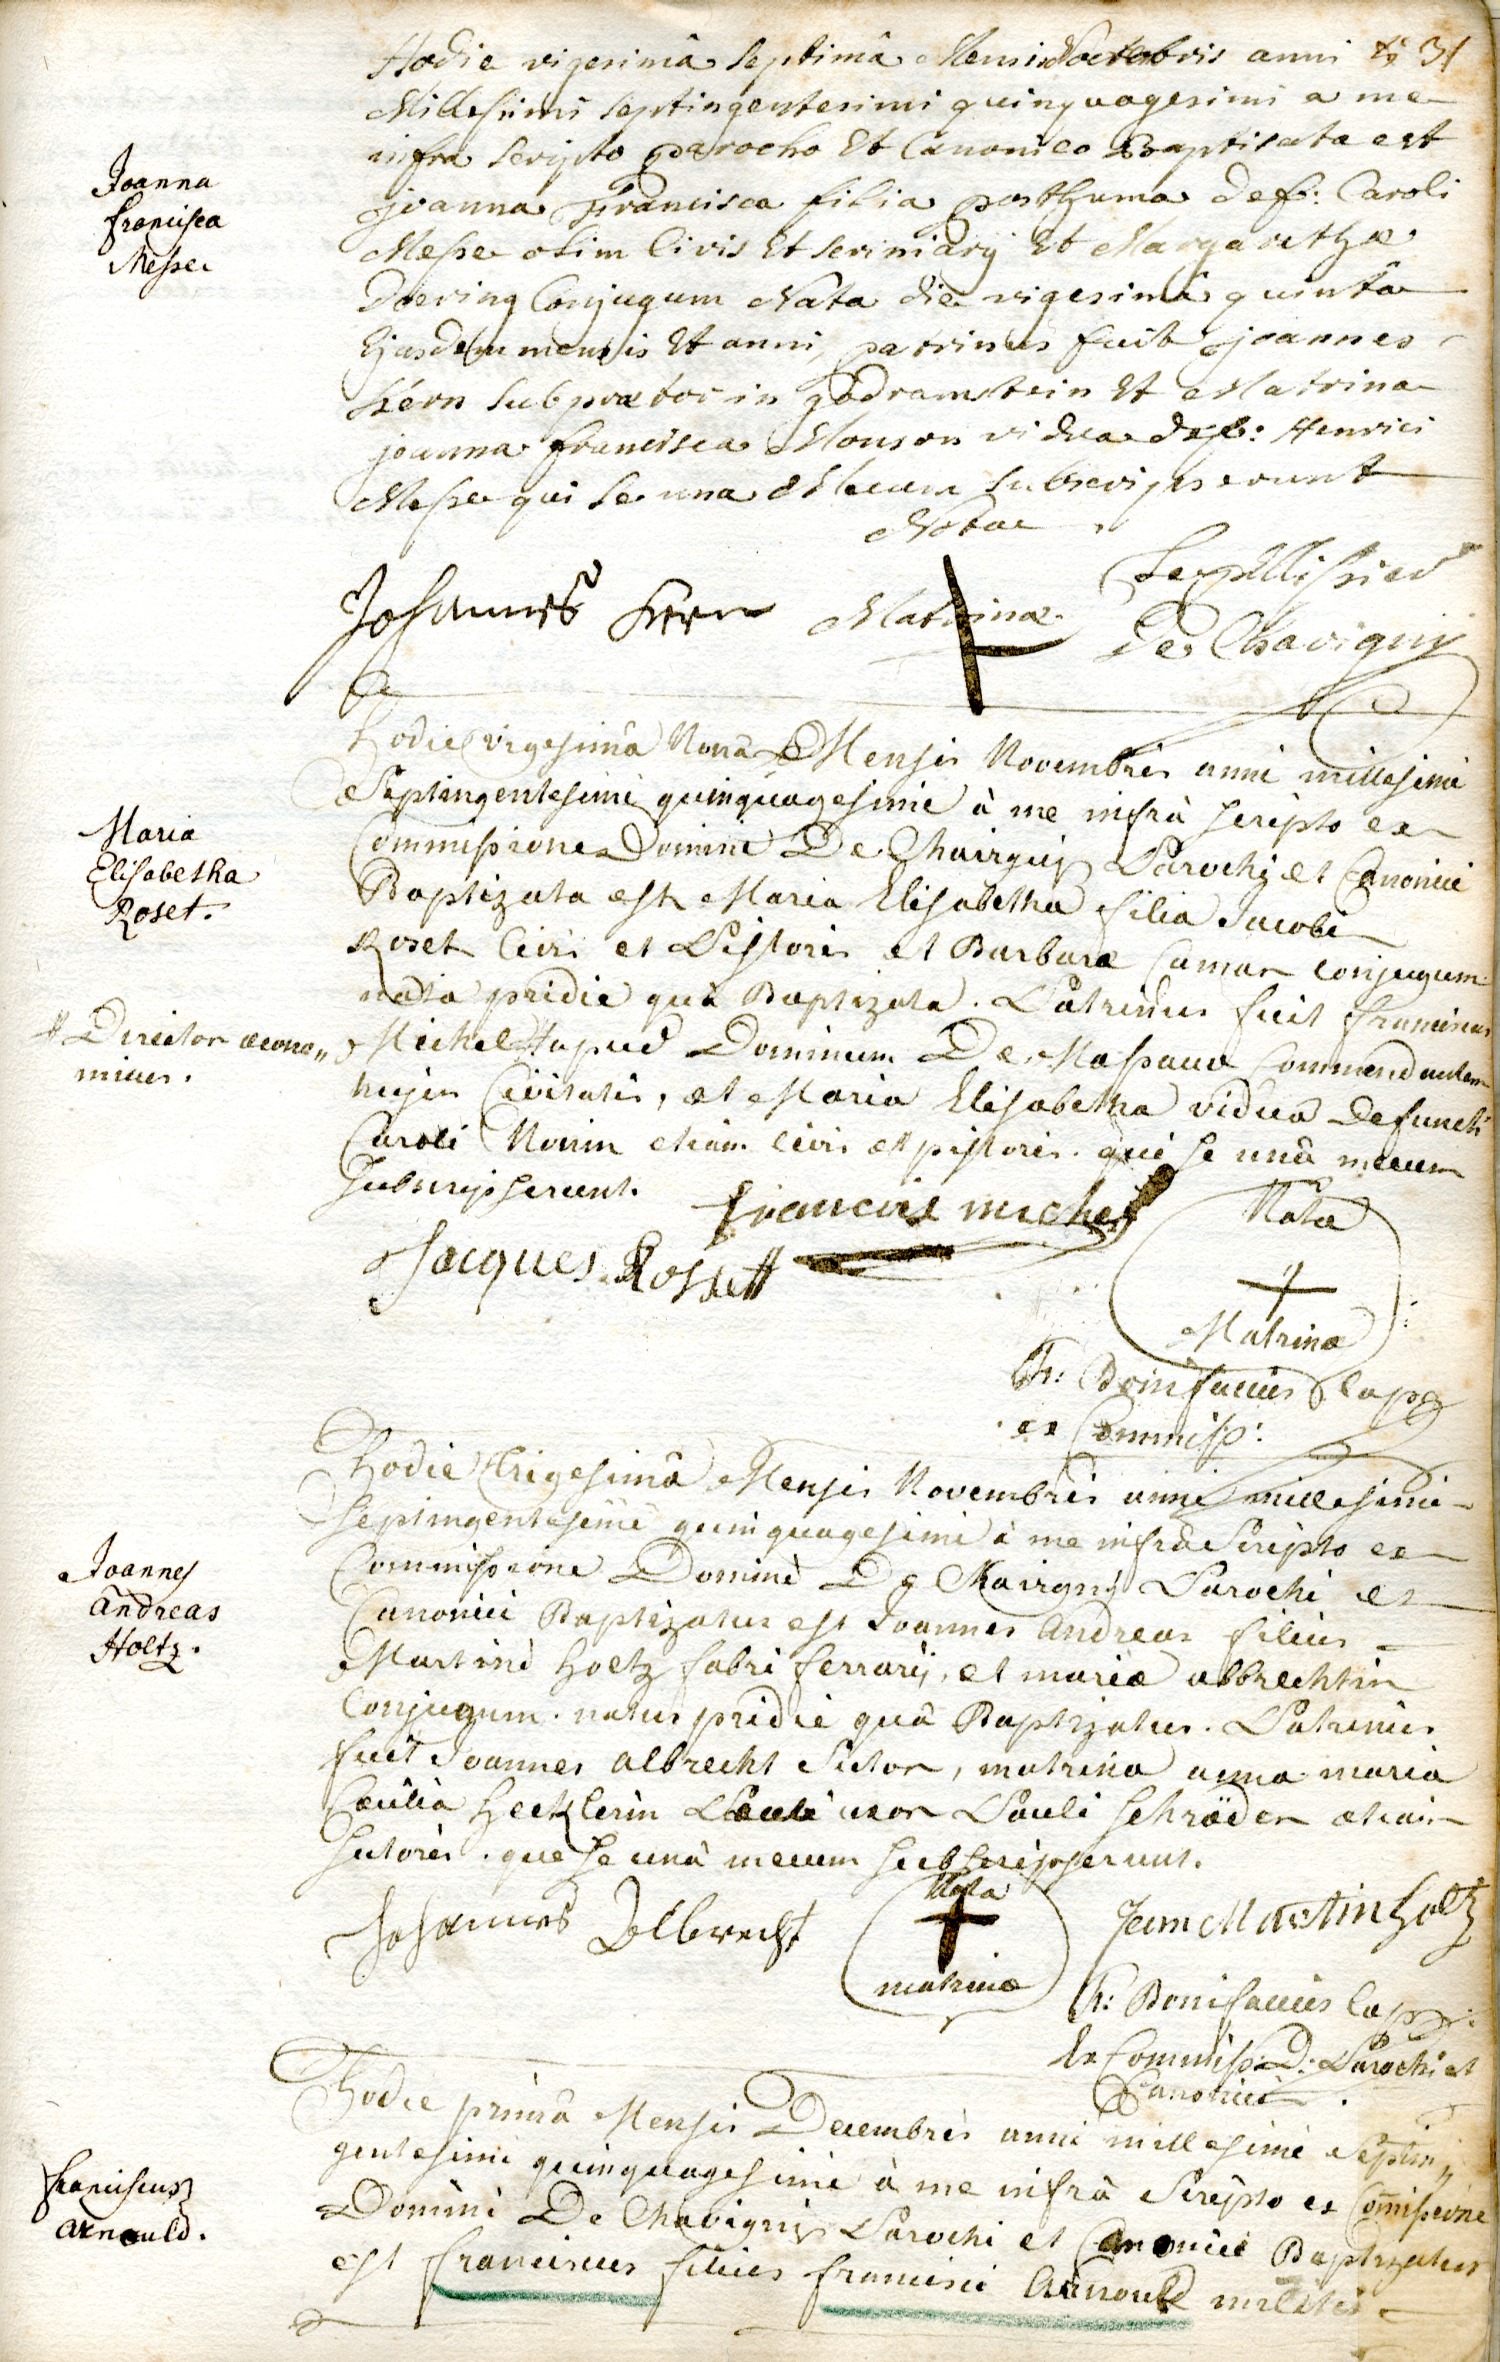 31
Hodie vigesimâ septimâ Mensis Novembris anni
Millesimi septingentesimi quinquagesimi a me
infra scripto parocho Et Canonico Baptisata est
joanna Francisca filia posthuma def: Caroli
Messe olim Civis Et scriniarij Et Margarethæ
Doering Conjugum Nata die vigesimâ quintâ
Ejusdem mensis Et anni, patrinus fuit joannes
Kern subprætor in godramstein Et Matrina
joanna francisca Monson vidua def: Henrici
Messe qui se una Mecum subscripserunt
Joanna
francisca
Messe
Notae
Johannes Kern
Matrinae
Le pellissier
De Chavigny
Hodie vigesimâ Nonâ Mensis Novembris anni millesimi
Septingentesimi quinquagesimi à me infrà scripto ex
Commissione Domini De Chavigny Parochi et Canonici
Baptizata est Maria Elisabetha filia Jacobi
Roset Civis et Pistoris et Barbaræ Camar conjugum
nata pridie quà Baptizata. Patrinus fuit franciscus
Michel # apud Dominum De Massaua Commendantem
hujus Civitatis, et Maria Elisabetha vidua defuncti
Caroli Morin etiam civis et pistoris. qui se unâ mecum
subscripserunt.
Maria
Elisabetha
Roset.
# Director æcono„
micus.
francois michel
Jacques Rosett
Nota
Matrinæ
Fr: Bonifacius Capp
ex Commiss:
Hodie trigesimâ Mensis Novembris anni millesimi
septingentesimi quinquagesimi à me infrà Scripto ex
Commissione Domini De Chavigny Parochi et
Canonici Baptizatus est Joannes Andreas filius
Martini Holtz fabri ferrarij, et mariæ albrechtin
Conjugum. natus pridie quâ Baptizatus. Patrinus
fuit Joannes albrecht Sutor, matrina anna maria
Cæcilia Hecklerin uxor Pauli Schröder etiam
sutoris. que se unà mecum subscripserunt.
Joannes
Andreas
Holtz.
Johannes Albrecht
Nota
matrinæ
Jean Martin holtz
Fr: Bonifacius Capp:
Ex Commiss: D: Parochi et
Canonici.
Hodie primâ Mensis Decembris anni millesimi Septin„
gentesimi quinquagesimi à me infrà Scripto ex Comissione
Domini De Chavigny Parochi et Canonici Baptizatus
est franciscus filius francisci Arnould militis
franciscus
Arnould.